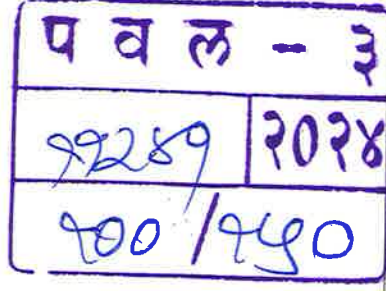 प व ल - ३
११२४१ २०२४
१०० / १५०